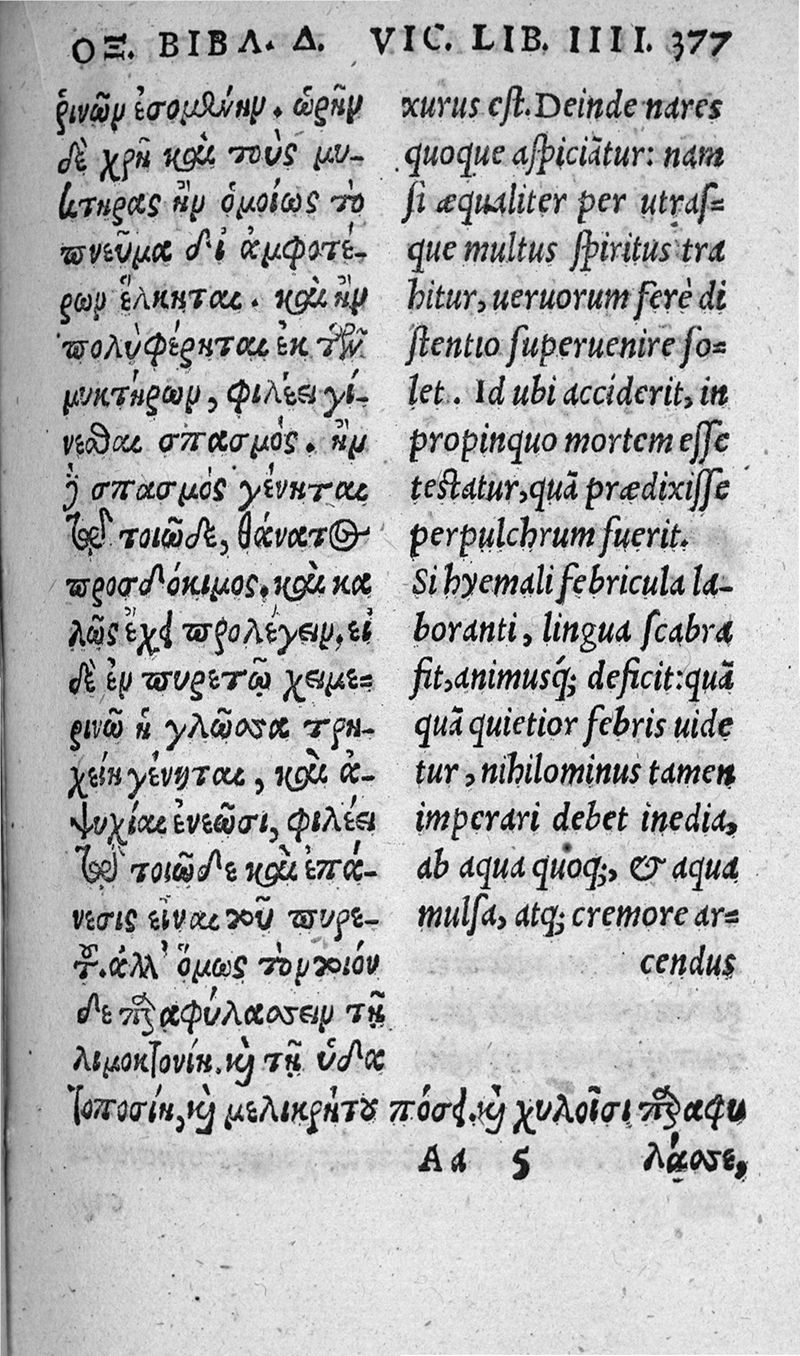 ΟΞ. ΒΙΒΛ. Δ. VIC. LIB. IIII. 377
ρινῶν ἐσομένην. ὡρῆν
δὲ χρὴ καὶ τοὺς μυ-
κτηρας ἢν ὁμοίως τὸ
πνεῦμα δι ἀμφοτέ-
ρων ἕλκηται. καὶ ἢν
πολὺ φέρηται ἐκ τῶν
μυκτήρων, φιλέει γί-
νεσθαι σπασμός. ἢν
ὃ σπασμός γένηται
τῷ τοιῷδε, θάνατος
προσδόκιμος. καὶ κα
λῶς ἔχει προλέγειν. εἰ
δὲ ἐν πυρετῷ χειμε=
ρινῷ ἡ γλῶσσα τρη-
χείη γένηται, καὶ ἀ-
ψυχίαι ἐνεῶσι, φιλέει
τῷ τοιῷδε καὶ ἐπά-
νεσις εἶναι τοῦ πυρε-
τοῦ. ἀλλ' ὅμως τὸν τοιόν
δε παραφύλασσειν τῇ
λιμοκτονίῃ. καὶ τῇ ὑδα
τοποσίῃ, καὶ μελικρήτου πόσει. καὶ χυλοῖσι παραφυ
xurus eſt. Deinde nares
quoque aſpiciãtur: nam
ſi æqualiter per utraſ=
que multus ſpiritus tra
hitur, ueruorum ferè di
ſtentio ſuperuenire ſo=
let. Id ubi acciderit, in
propinquo mortem eſſe
testatur, quã prædixiſſe
perpulchrum fuerit.
Si hyemali febricula la-
boranti, lingua ſcabra
fit, animusq́; deficit: quã
quã quietior febris uide
tur, nihilominus tamen
imperari debet inedia,
ab aqua quoq;, & aqua
mulſa, atq; cremore ar=
cendus
Aa 5 λάσσε,